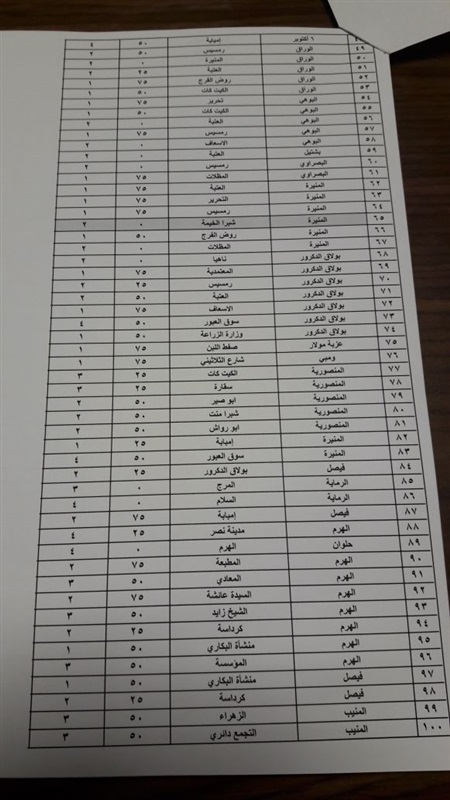 ٦ أكتوبر إمبابة ٥٠ ٤
٤٩ الوراق رمسيس ٥٠ ٢
٥٠ الوراق المنيرة ٠ ٢
٥١ الوراق العتبة ٢٥ ٢
٥٢ الوراق روض الفرج ٧٥ ١
٥٣ الوراق الكيت كات ٥٠ ١
٥٤ البوهي تحرير ٧٥ ١
٥٥ البوهي الكيت كات ٥٠ ١
٥٦ البوهي العتبة ٠ ٢
٥٧ البوهي رمسيس ٧٥ ١
٥٨ البوهي الاسعاف ٠ ٢
٥٩ بشتيل العتبة ٠ ٢
٦٠ البصراوي رمسيس ٠ ٢
٦١ البصراوي المظلات ٧٥ ١
٦٢ المنيرة العتبة ٧٥ ١
٦٣ المنيرة التحرير ٧٥ ١
٦٤ المنيرة رمسيس ٧٥ ١
٦٥ المنيرة شبرا الخيمة ٠ ٢
٦٦ المنيرة روض الفرج ٥٠ ١
٦٧ المنيرة المظلات ٠ ٢
٦٨ بولاق الدكرور ناهيا ٠ ٢
٦٩ بولاق الدكرور المعتمدية ٧٥ ١
٧٠ بولاق الدكرور رمسيس ٢٥ ٢
٧١ بولاق الدكرور العتبة ٥٠ ٢
٧٢ بولاق الدكرور الاسعاف ٧٥ ١
٧٣ بولاق الدكرور سوق العبور ٥٠ ٤
٧٤ بولاق الدكرور وزارة الزراعة ٥٠ ١
٧٥ عزبة مولار صفط اللبن ٧٥ ١
٧٦ ومبي شارع الثلاثيني ٧٥ ١
٧٧ المنصورية الكيت كات ٢٥ ٣
٧٨ المنصورية سقارة ٢٥ ٣
٧٩ المنصورية ابو صير ٥٠ ٢
٨٠ المنصورية شبرا منت ٥٠ ٢
٨١ المنصورية ابو رواش ٥٠ ٢
٨٢ المنيرة إمبابة ٢٥ ١
٨٣ المنيرة سوق العبور ٥٠ ٤
٨٤ فيصل بولاق الدكرور ٢٥ ٢
٨٥ الرماية المرج ٠ ٣
٨٦ الرماية السلام ٠ ٤
٨٧ فيصل إمبابة ٧٥ ٢
٨٨ الهرم مدينة نصر ٢٥ ٤
٨٩ حلوان الهرم ٠ ٤
٩٠ الهرم المطبعة ٧٥ ٢
٩١ الهرم المعادي ٥٠ ٣
٩٢ الهرم السيدة عائشة ٧٥ ٢
٩٣ الهرم الشيخ زايد ٥٠ ٣
٩٤ الهرم كرداسة ٢٥ ٢
٩٥ الهرم منشأة البكاري ٥٠ ١
٩٦ الهرم المؤسسة ٥٠ ٣
٩٧ فيصل منشأة البكاري ٥٠ ١
٩٨ فيصل كرداسة ٢٥ ٢
٩٩ المنيب الزهراء ٥٠ ٣
١٠٠ المنيب التجمع دائري ٥٠ ٣